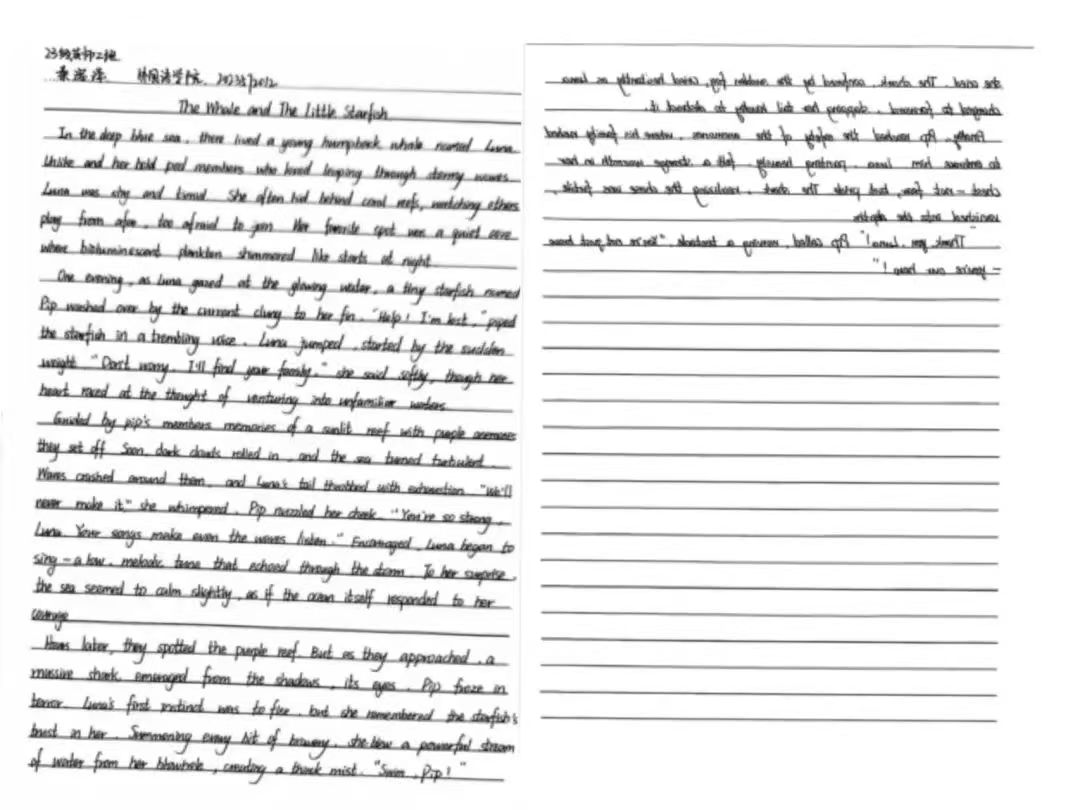 23级英师二班
外国语学院 2023312012
The Whale and The Little Starfish
In the deep blue sea, there lived a young humpback whale named Luna.
Unlike and her bold pod members who loved leaping through stormy waves.
Luna was shy and timid. She often hid behind coral reefs, watching others
play from afar, too afraid to join. Her favorite spot was a quiet cove
where bioluminescent plankton shimmered like starts at night.
One evening, as Luna gazed at the glowing water, a tiny starfish named
Pip washed over by the current clung to her fin. "Help! I'm lost," piped
the starfish in a trembling voice. Luna jumped, started by the sudden
weight. "Don't worry. I'll find your family," she said softly, though her
heart raced at the thought of venturing into unfamiliar waters.
Guided by pip's members memories of a sunlit reef with purple anemones
they set off. Soon, dark clouds rolled in, and the sea turned turbulent.
Waves crashed around them, and Luna's tail throbbed with exhaustion. "We'll
never make it," she whimpered. Pip nuzzled her cheek. "You're so strong,
Luna. Your songs make even the waves listen." Encouraged, Luna began to
sing – a low, melodic tune that echoed through the storm. To her surprise,
the sea seemed to calm slightly, as if the ocean itself responded to her
courage
Hours later, they spotted the purple reef. But as they approached, a
massive shark emeraged from the shadows, its eyes. Pip froze in
terror. Luna's first instinct was to flee, but she remembered the starfish's
trust in her. Summoning every bit of bravery, she blew a powerful stream
of water from her blowhole, creating a thick mist. "Swim, Pip!"
she cried. The shark, confused by the sudden fog, hesitantly as Luna
charged to forward, slapping her tail loudly to distract it.
Finally, Pip reached the safety of the anemones, where his family rushed
to embrace him. Luna, panting heavily, felt a strange warmth in her
chest – not fear, but pride. The shark, realizing the chase was futile,
vanished into the depths.
"Thank you, Luna!" Pip called, waving a tentacle. "You're not just brave
– you're our hero!"